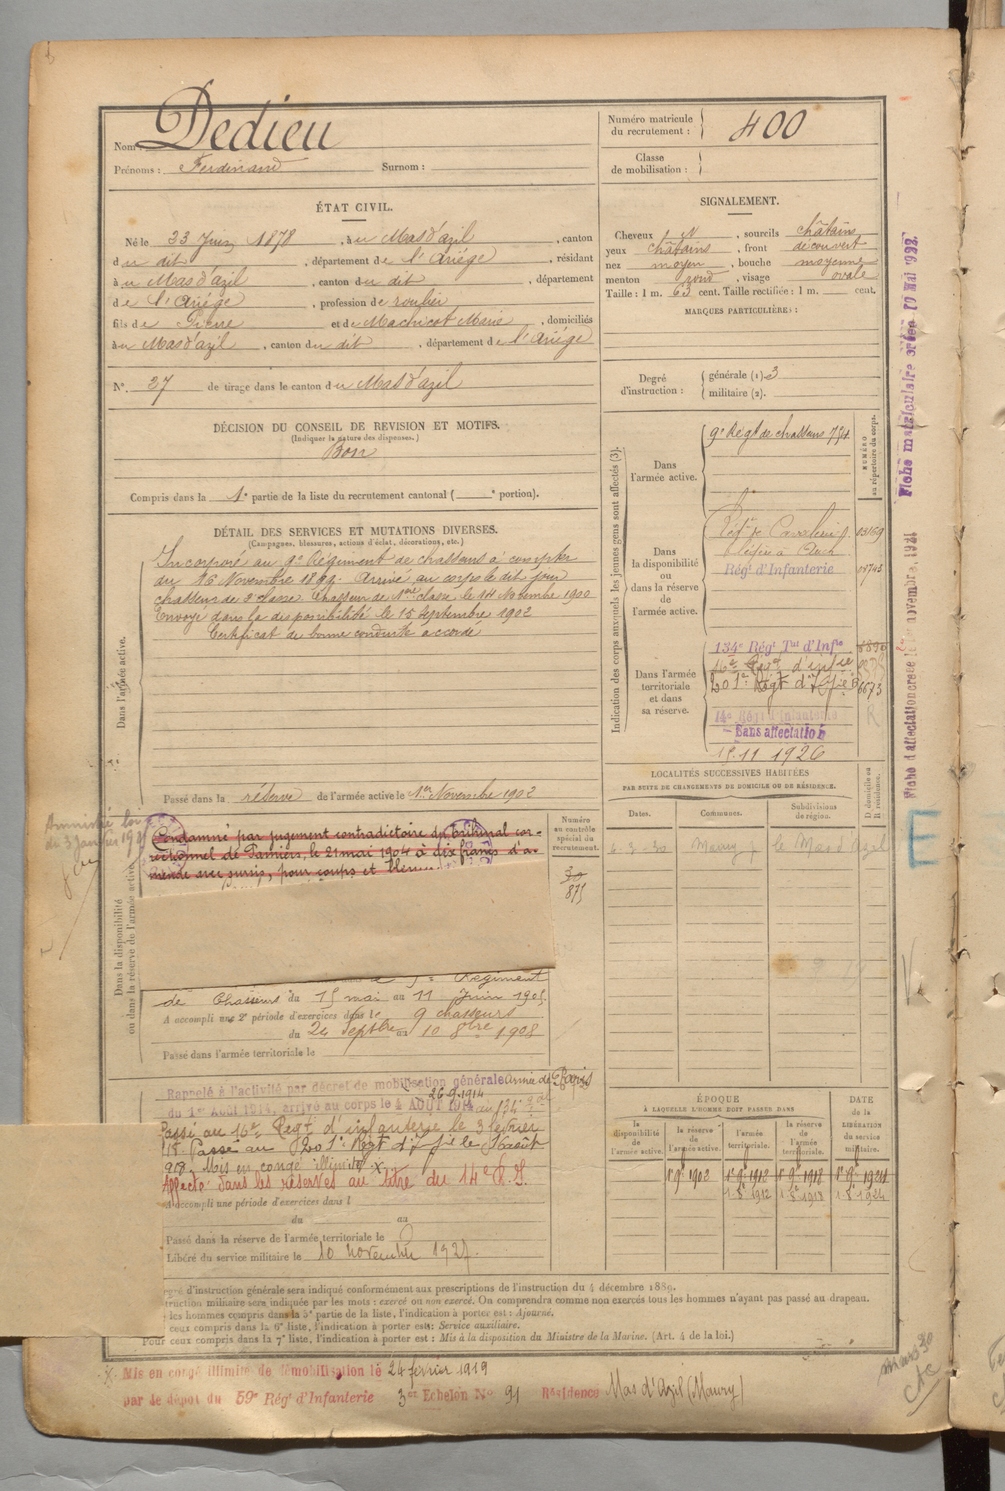 Nom : Dedieu
Prénoms : Ferdinand Surnom :
ÉTAT CIVIL.
Né le 23 Juin 1878, à u Mas d'azil, canton
d u dit, département d e l'Ariège, résidant
à u Mas d'azil, canton d u dit, département
d e l'Ariège, profession de roulier
fils de Pierre et de Machicot Marie, domiciliés
à u Mas d'azil, canton d u dit, département d e l'Ariège
N° 37 de tirage dans le canton d u Mas d'azil
DÉCISION DU CONSEIL DE REVISION ET MOTIFS.
(Indiquer la nature des dispenses.)
Bon
Compris dans la 1e partie de la liste du recrutement cantonal ( e portion).
DÉTAIL DES SERVICES ET MUTATIONS DIVERSES.
(Campagnes, blessures, actions d'éclat, décorations, etc.)
Dans l'armée active.
Incorporé au 9e Régiment de chasseurs à compter
du 16 Novembre 1899. Arrivé au corps le dit jour
chasseur de 2e classe. Chasseur de 1ère classe le 14 Novembre 1900
Envoyé dans la disponibilité le 15 Septembre 1902
Certificat de bonne conduite accordé
Passé dans la réserve de l'armée active le 1er Novembre 1902
Amnistié loi
du 3 janvier 1925
Dans la disponibilité
ou dans la réserve de l'armée active
Condamné par jugement contradictoire du Tribunal cor-
rectionnel de Pamiers, le 21 mai 1904 à dix francs d'a-
mende avec sursis, pour coups et
Numéro
au contrôle
spécial du
recrutement.
875
Régiment
de Chasseurs du 15 mai au 11 Juin 1905
A accompli une 2e période d'exercices dans le 9 chasseurs
du 24 Septbre au 10 8bre 1908
Passé dans l'armée territoriale le
Rappelé à l'activité par décret de mobilisation générale Armée de Paris
26.9.1914
du 1er AOUT 1914, arrivé au corps le 4 AOUT 1914 au 134e
Passé au 16e Régt d'infanterie le 3 février
Passé au 201e Régt d'Inf ie le août
918. Mis en congé illimité x
Affecté dans les réserves au titre du 14e R.I.
A accompli une période d'exercices dans l
du au
Passé dans la réserve de l'armée territoriale le
Libéré du service militaire le 10 novembre 1927.
d'instruction générale sera indiqué conformément aux prescriptions de l'instruction du 4 décembre 1889.
truction militaire sera indiquée par les mots : exercé ou non exercé. On comprendra comme non exercés tous les hommes n'ayant pas passé au drapeau.
les hommes compris dans la 5e partie de la liste, l'indication à porter est : Ajourné.
ceux compris dans la 6e liste, l'indication à porter est : Service auxiliaire.
Pour ceux compris dans la 7e liste, l'indication à porter est : Mis à la disposition du Ministre de la Marine. (Art. 4 de la loi.)
Mis en congé illimité de démobilisation le 24 février 1919
par le dépôt du 59e Régt d'Infanterie 3er Echelon N° 91 Résidence Mas d'Azil (Maury)
Numéro matricule
du recrutement : 400
Classe
de mobilisation :
SIGNALEMENT.
Cheveux N, sourcils châtains
yeux châtains, front découvert
nez moyen, bouche moyenne
menton rond, visage ovale
Taille : 1 m. 63 cent. Taille rectifiée : 1 m. cent.
MARQUES PARTICULIÈRES :
Degré
d'instruction :
générale (1) 3
militaire (2).
Indication des corps auxquels les jeunes gens sont affectés (3).
NUMÉRO
au répertoire du corps.
Dans
l'armée active.
9e Régt de chasseurs 794
Dans
la disponibilité
ou dans la réserve
de
l'armée active.
Régt d'Infanterie
Dans l'armée
territoriale
et dans
sa réserve.
134e Régt Tal d'Infie
16e Régt d'infie
201e Régt d'Infie 6673
14e Régt d'Infanterie
Sans affectation
R
15.11 1926
LOCALITÉS SUCCESSIVES HABITÉES
PAR SUITE DE CHANGEMENTS DE DOMICILE OU DE RÉSIDENCE.
D domicile ou
R résidence.
Dates. Communes. Subdivisions de région.
4.3.30 Maury le Mas d'Azil
ÉPOQUE
À LAQUELLE L'HOMME DOIT PASSER DANS
DATE
de la
LIBÉRATION
du service
militaire.
la disponibilité de l'armée active.
la réserve de l'armée active.
l'armée territoriale.
la réserve de l'armée territoriale.
1er 9bre 1902 1er 9bre 1912 1er 9bre 1918 1er 9bre 1924
1.8.1912 1.8.1918 1.8.1924
Fiche matriculaire créée 10 Mai 1922.
Fiche d'affectation créée le novembre 1921
E